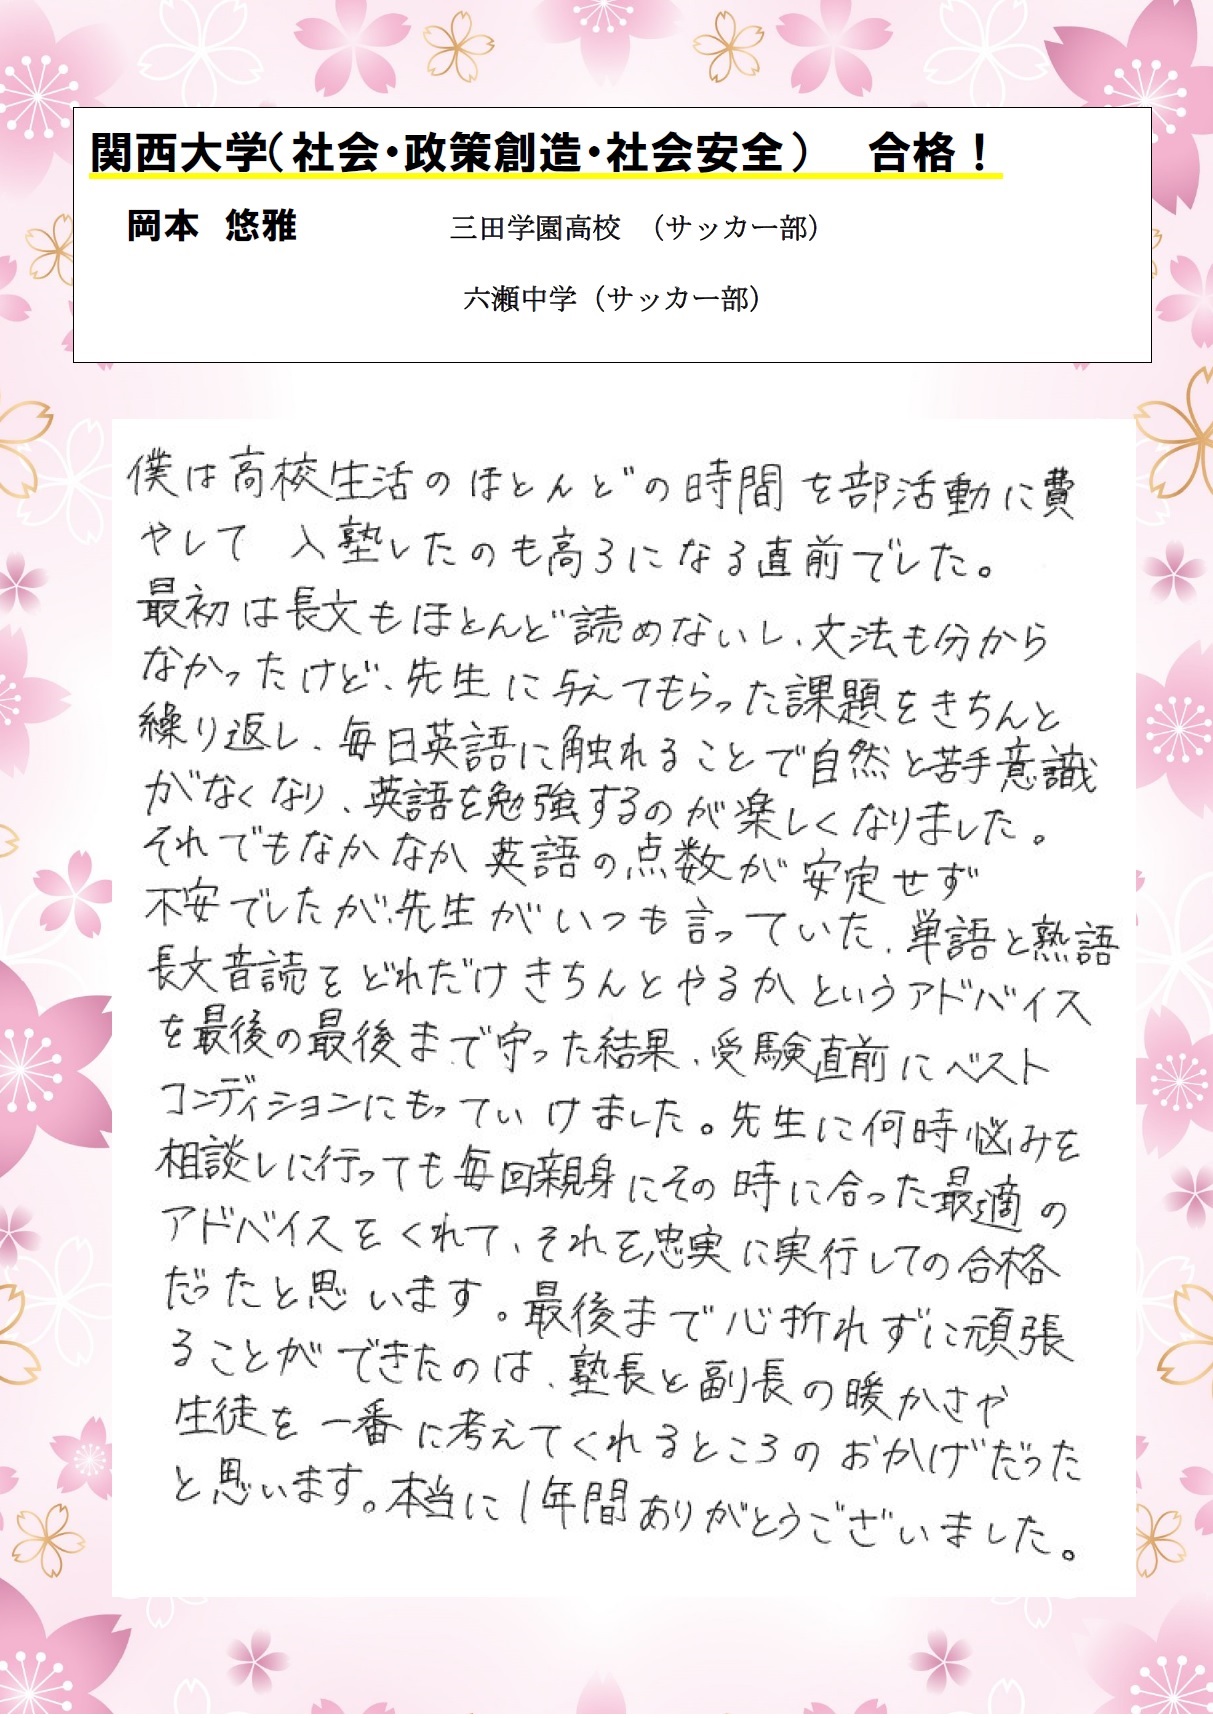 関西大学(社会・政策創造・社会安全)　合格！
岡本　悠雅　三田学園高校　（サッカー部）
六瀬中学（サッカー部）
僕は高校生活のほとんどの時間を部活動に費
やして　入塾したのも高3になる直前でした。
最初は長文もほとんど読めないし、文法も分から
なかったけど、先生に与えてもらった課題をきちんと
繰り返し、毎日英語に触れることで自然と苦手意識
がなくなり、英語を勉強するのが楽しくなりました。
それでもなかなか英語の点数が安定せず
不安でしたが、先生がいつも言っていた、単語と熟語
長文音読をどれだけきちんとやるかというアドバイス
を最後の最後まで守った結果、受験直前にベスト
コンディションにもっていけました。先生に何時悩みを
相談しに行っても毎回親身にその時に合った最適の
アドバイスをくれて、それを忠実に実行しての合格
だったと思います。最後まで心折れずに頑張
ることができたのは、塾長と副長の暖かさや
生徒を一番に考えてくれるところのおかげだった
と思います。本当に1年間ありがとうございました。